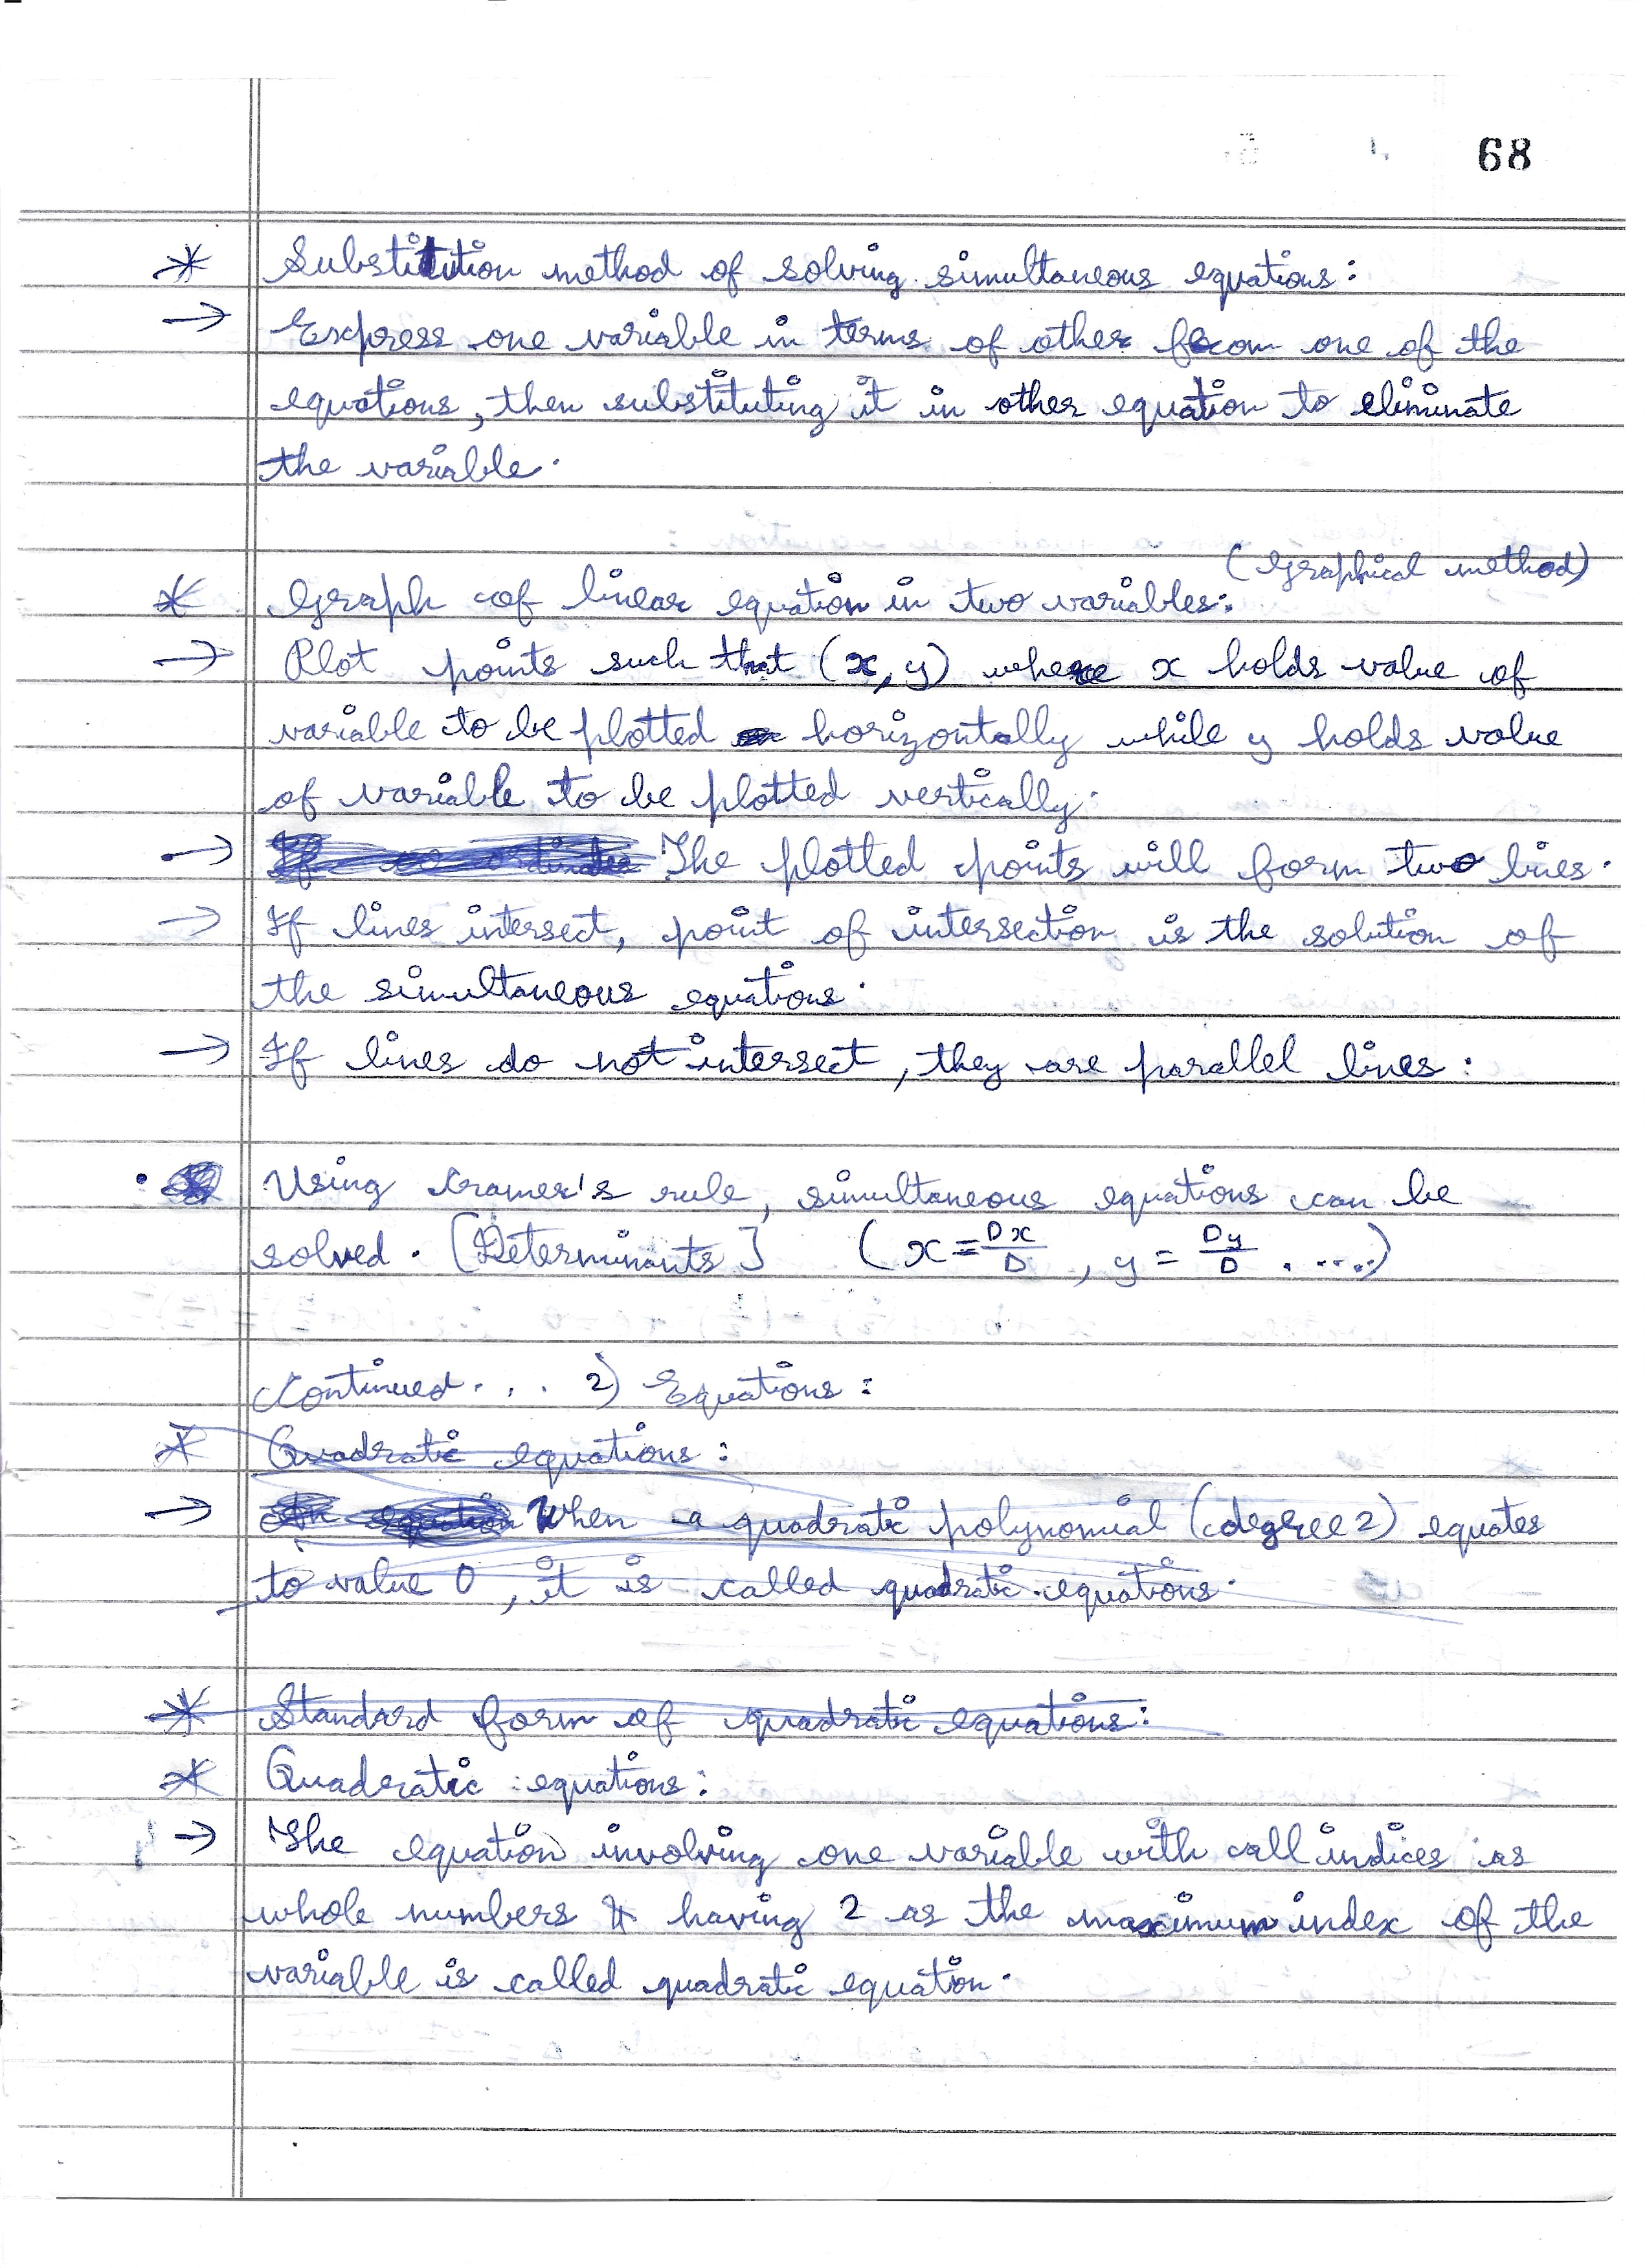 68
* Substitution method of solving simultaneous equations:
→ Express one variable in terms of other from one of the
equations, then substituting it in other equation to eliminate
the variable.
(Graphical method)
* Graph of linear equation in two variables:
→ Plot points such that (x, y) where x holds value of
variable to be plotted horizontally while y holds value
of variable to be plotted vertically.
→ The plotted points will form two lines.
→ If lines intersect, point of intersection is the solution of
the simultaneous equations.
→ If lines do not intersect, they are parallel lines:
• Using Cramer's rule, simultaneous equations can be
solved. [Determinants] (x = Dx/D, y = Dy/D .....)
Continued... 2) Equations:
* Quadratic equations:
→ When a quadratic polynomial (degree 2) equates
to value 0, it is called quadratic equations.
* Standard form of quadratic equations:
* Quadratic equations:
→ The equation involving one variable with all indices as
whole numbers & having 2 as the maximum index of the
variable is called quadratic equation.